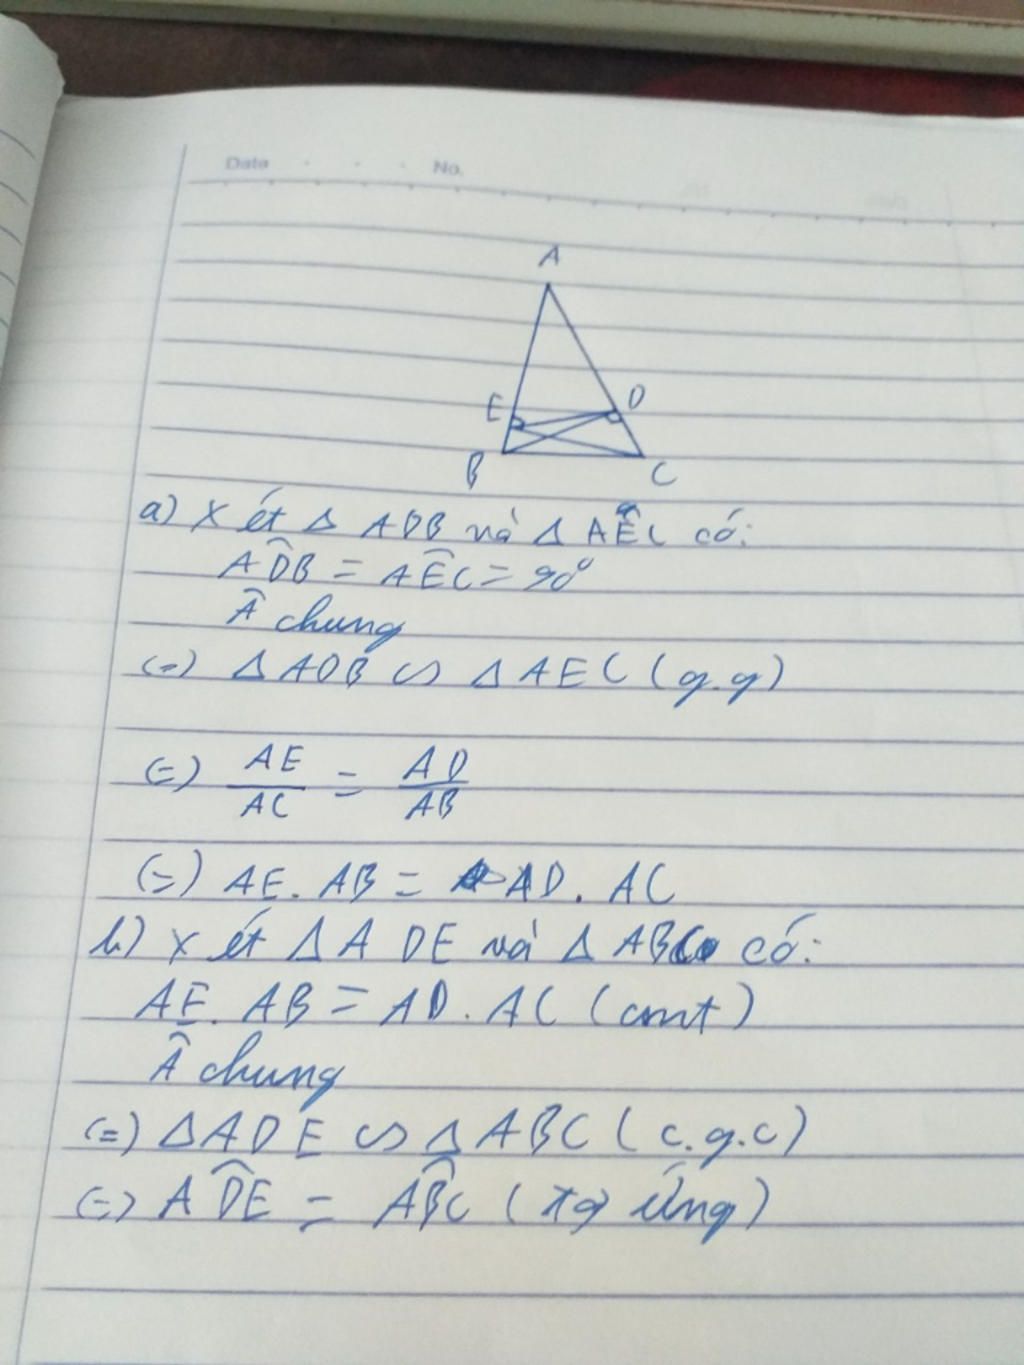 Date No.
A
E D
B C
a) Xét Δ ADB và Δ AÊC có:
AD̂B = AÊC = 90°
Â chung
(=) ΔADB ∽ ΔAEC (g.g)
(=) AE/AC = AD/AB
(=) AE. AB = AD. AC
b) Xét ΔADE và Δ ABC có:
AE. AB = AD. AC (cmt)
Â chung
(=) ΔADE ∽ ΔABC (c.g.c)
(=) AD̂E = AB̂C (tg ứng)